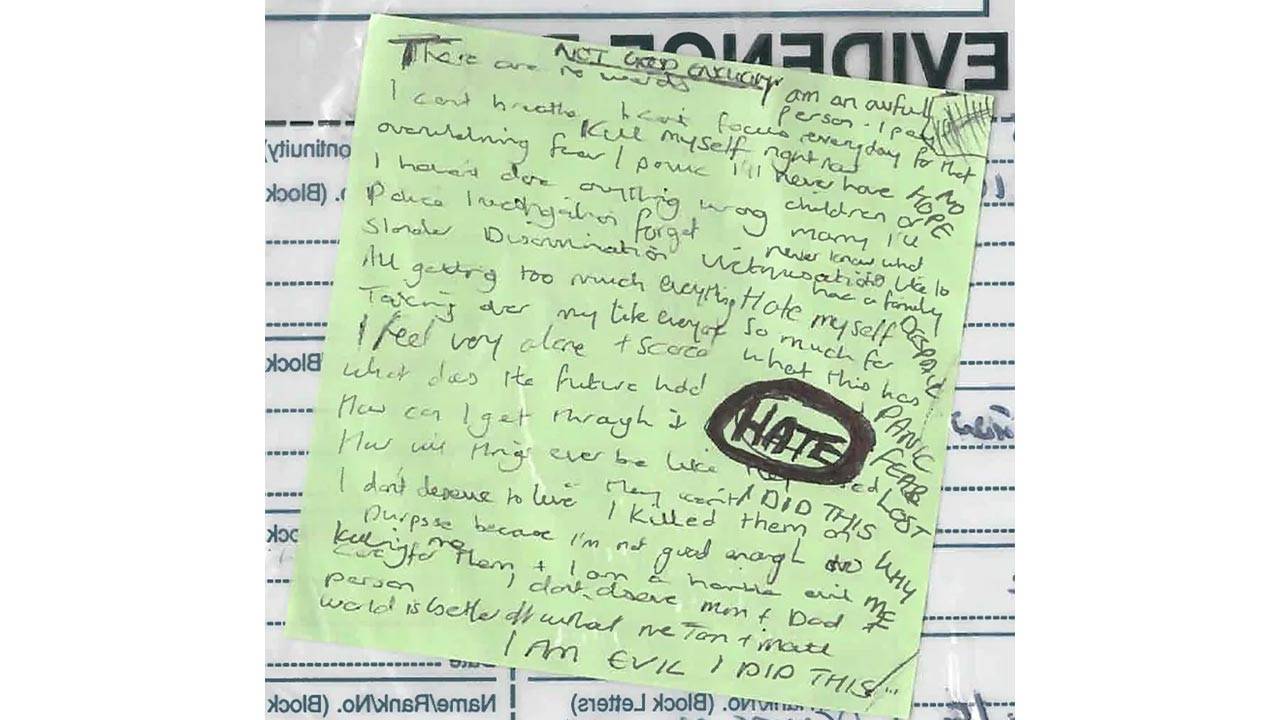 NOT GOOD ENOUGH
There are no words
I am an awful person. I pay
everyday for that
I can't breathe I can't focus
Kill myself right now
overwhelming fear / panic
I'll never have
children or
marry I'll
never know what
it's like to
have a family
NO
HOPE
I haven't done anything wrong
Police investigation forget
Slander Discrimination Victimisation
All getting too much everything
Hate myself
so much for
what this has
DESPAIR
PANIC
FEAR
LOST
Taking over my life everyday
I feel very alone + scared
What does the future hold
How can I get through it
HATE
How will things ever be like
they won't
I DID THIS
WHY
ME
I don't deserve to live
I killed them on
purpose because I'm not good enough to
care for them + I am a horrible evil
person
killing me
I don't deserve mum + Dad +
world is better off without me
I AM EVIL I DID THIS
EVIDENCE
(Block
(Block
(Block
Name/Rank/No. (Block
(Block Letters)